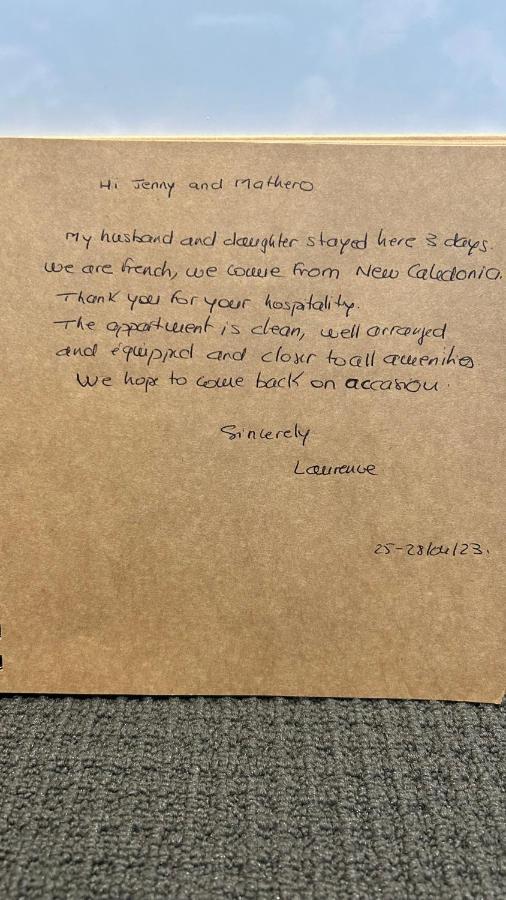 Hi Jenny and Mathero
My husband and daughter stayed here 3 days.
we are french, we come from New Caledonia.
Thank you for your hospitality.
The appartment is clean, well arranged
and équipped and closer to all amenities
We hope to come back on accasion.
Sincerely
Laurence
25-28/04/23.